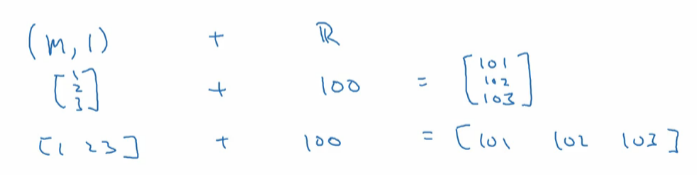 (m, 1) + ℝ
[1 2 3] + 100 = [101 102 103]
[1 2 3] + 100 = [101 102 103]